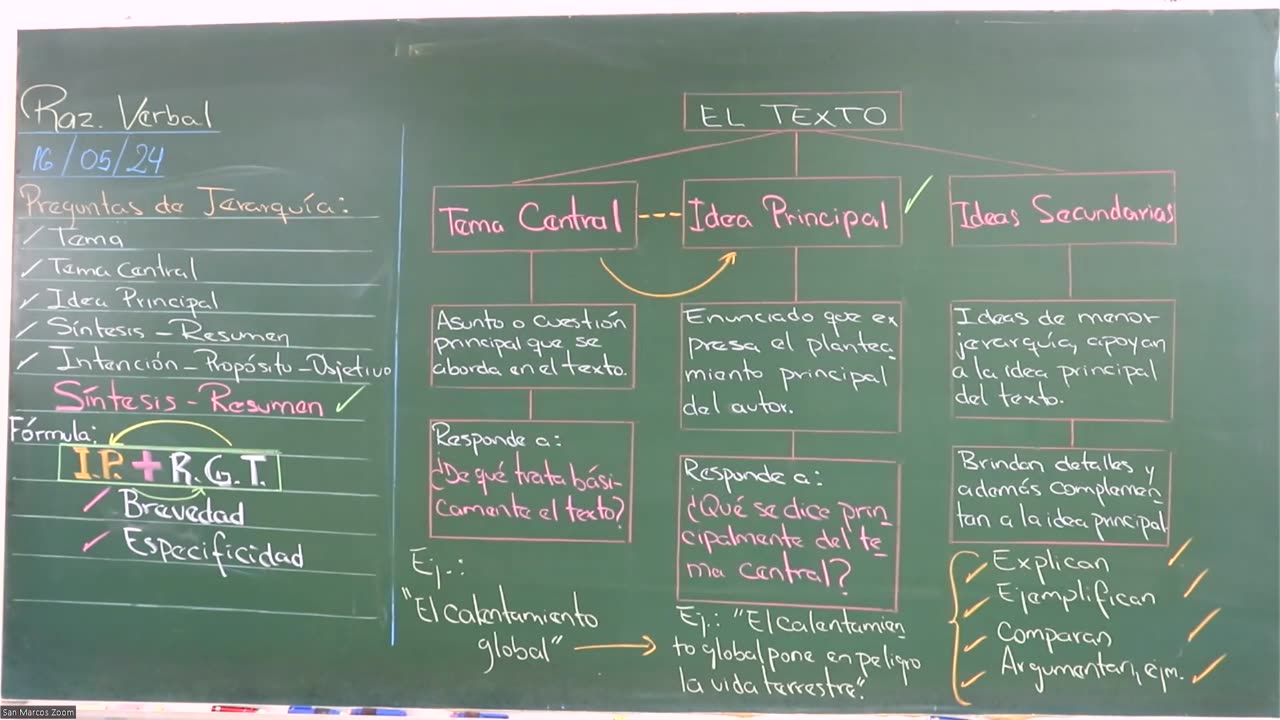 Raz. Verbal
16/05/24
Preguntas de Jerarquía:
Tema
Tema Central
Idea Principal
Síntesis - Resumen
Intención - Propósito - Objetivo
Síntesis - Resumen
Fórmula:
I.P. + R.G.T.
Brevedad
Especificidad
EL TEXTO
Tema Central
Asunto o cuestión
principal que se
aborda en el texto.
Responde a:
¿De qué trata bási-
camente el texto?
Ej.:
"El calentamiento
global"
Idea Principal
Enunciado que ex
presa el plantea-
miento principal
del autor.
Responde a:
¿Qué se dice prin-
cipalmente del te-
ma central?
Ej.: "El calentamien-
to global pone en peligro
la vida terrestre".
Ideas Secundarias
Ideas de menor
jerarquía, apoyan
a la idea principal
del texto.
Brindan detalles y
además complemen-
tan a la idea principal.
Explican
Ejemplifican
Comparan
Argumentan, ejm.
San Marcos Zoom